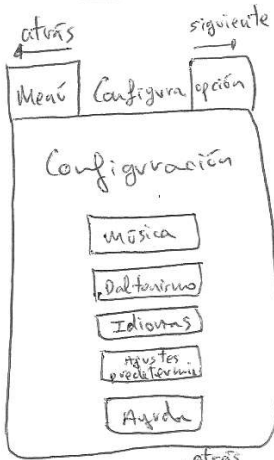 atrás
siguiente
Menú
Configura
opción
Configuración
Música
Daltonismo
Idiomas
Ajustes
predetermi
Ayuda
atrás